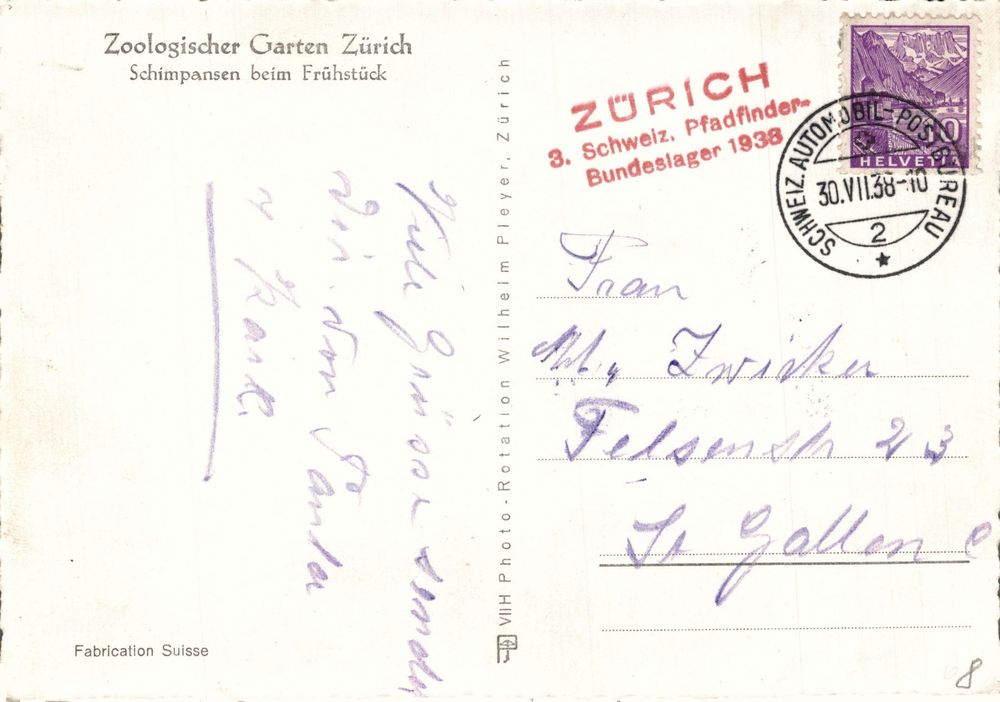 Zoologischer Garten Zürich
Schimpansen beim Frühstück
Viele Grüsse senden
dir von Tante
Fabrication Suisse
VIIH Photo-Rotation Wilhelm Pleyer, Zürich
ZÜRICH
3. Schweiz. Pfadfinder-
Bundeslager 1938
10
HELVETIA
SCHWEIZ. AUTOMOBIL-POSTBUREAU
30.VII.38-10
2
Frau
Zwicker
Felsenstr 23
St Gallen C
8